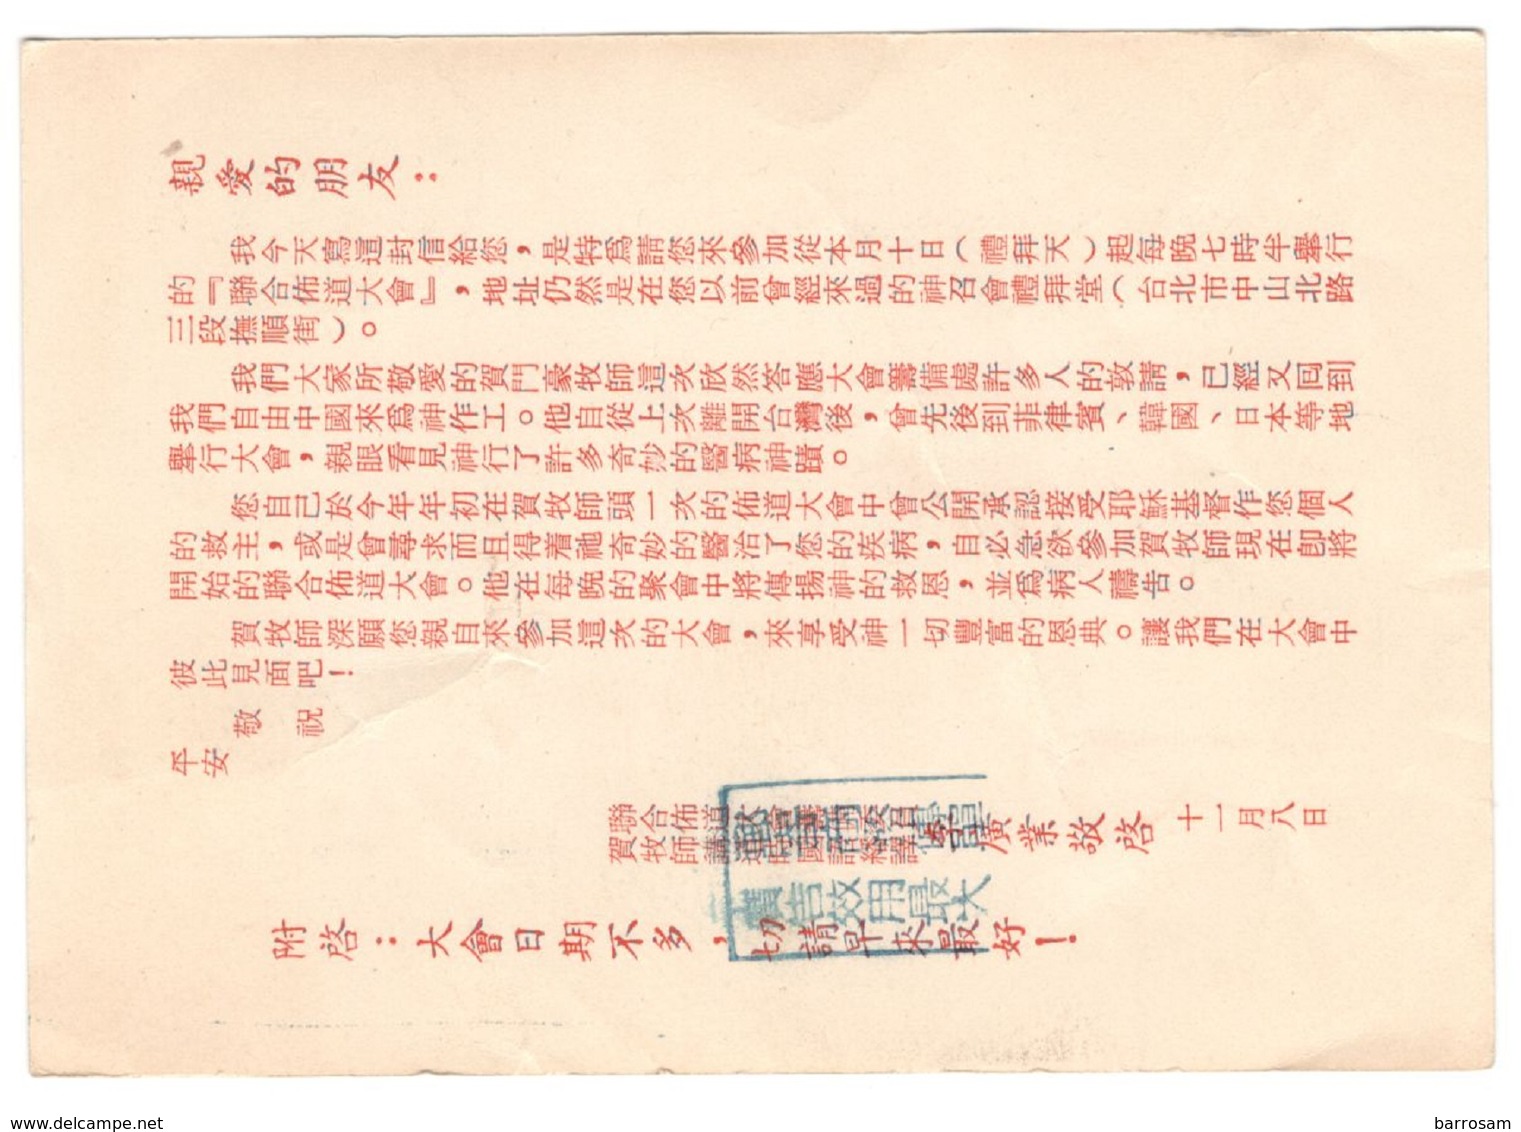 親愛的朋友：
我今天寫這封信給您，是特為請您來參加從本月十日（禮拜天）起每晚七時半舉行
的『聯合佈道大會』，地址仍然是在您以前曾經來過的神召會禮拜堂（台北市中山北路
三段撫順街）。
我們大家所敬愛的賀門豪牧師這次欣然答應大會籌備處許多人的敦請，已經又回到
我們自由中國來為神作工。他自從上次離開台灣後，曾先後到菲律賓、韓國、日本等地
舉行大會，親眼看見神行了許多奇妙的醫病神蹟。
您自己於今年年初在賀牧師頭一次的佈道大會中曾公開承認接受耶穌基督作您個人
的救主，或是會尋求而且得着祂奇妙的醫治了您的疾病，自必急欲參加賀牧師現在即將
開始的聯合佈道大會。他在每晚的聚會中將傳揚神的救恩，並為病人禱告。
賀牧師深願您親自來參加這次的大會，來享受神一切豐富的恩典。讓我們在大會中
彼此見面吧！
敬祝
平安
聯合佈道大會
賀牧師講道
廣業敬啓
十一月八日
附啓：大會日期不多，切請早來最好！
廣告效用最大
www.delcampe.net
barrosam